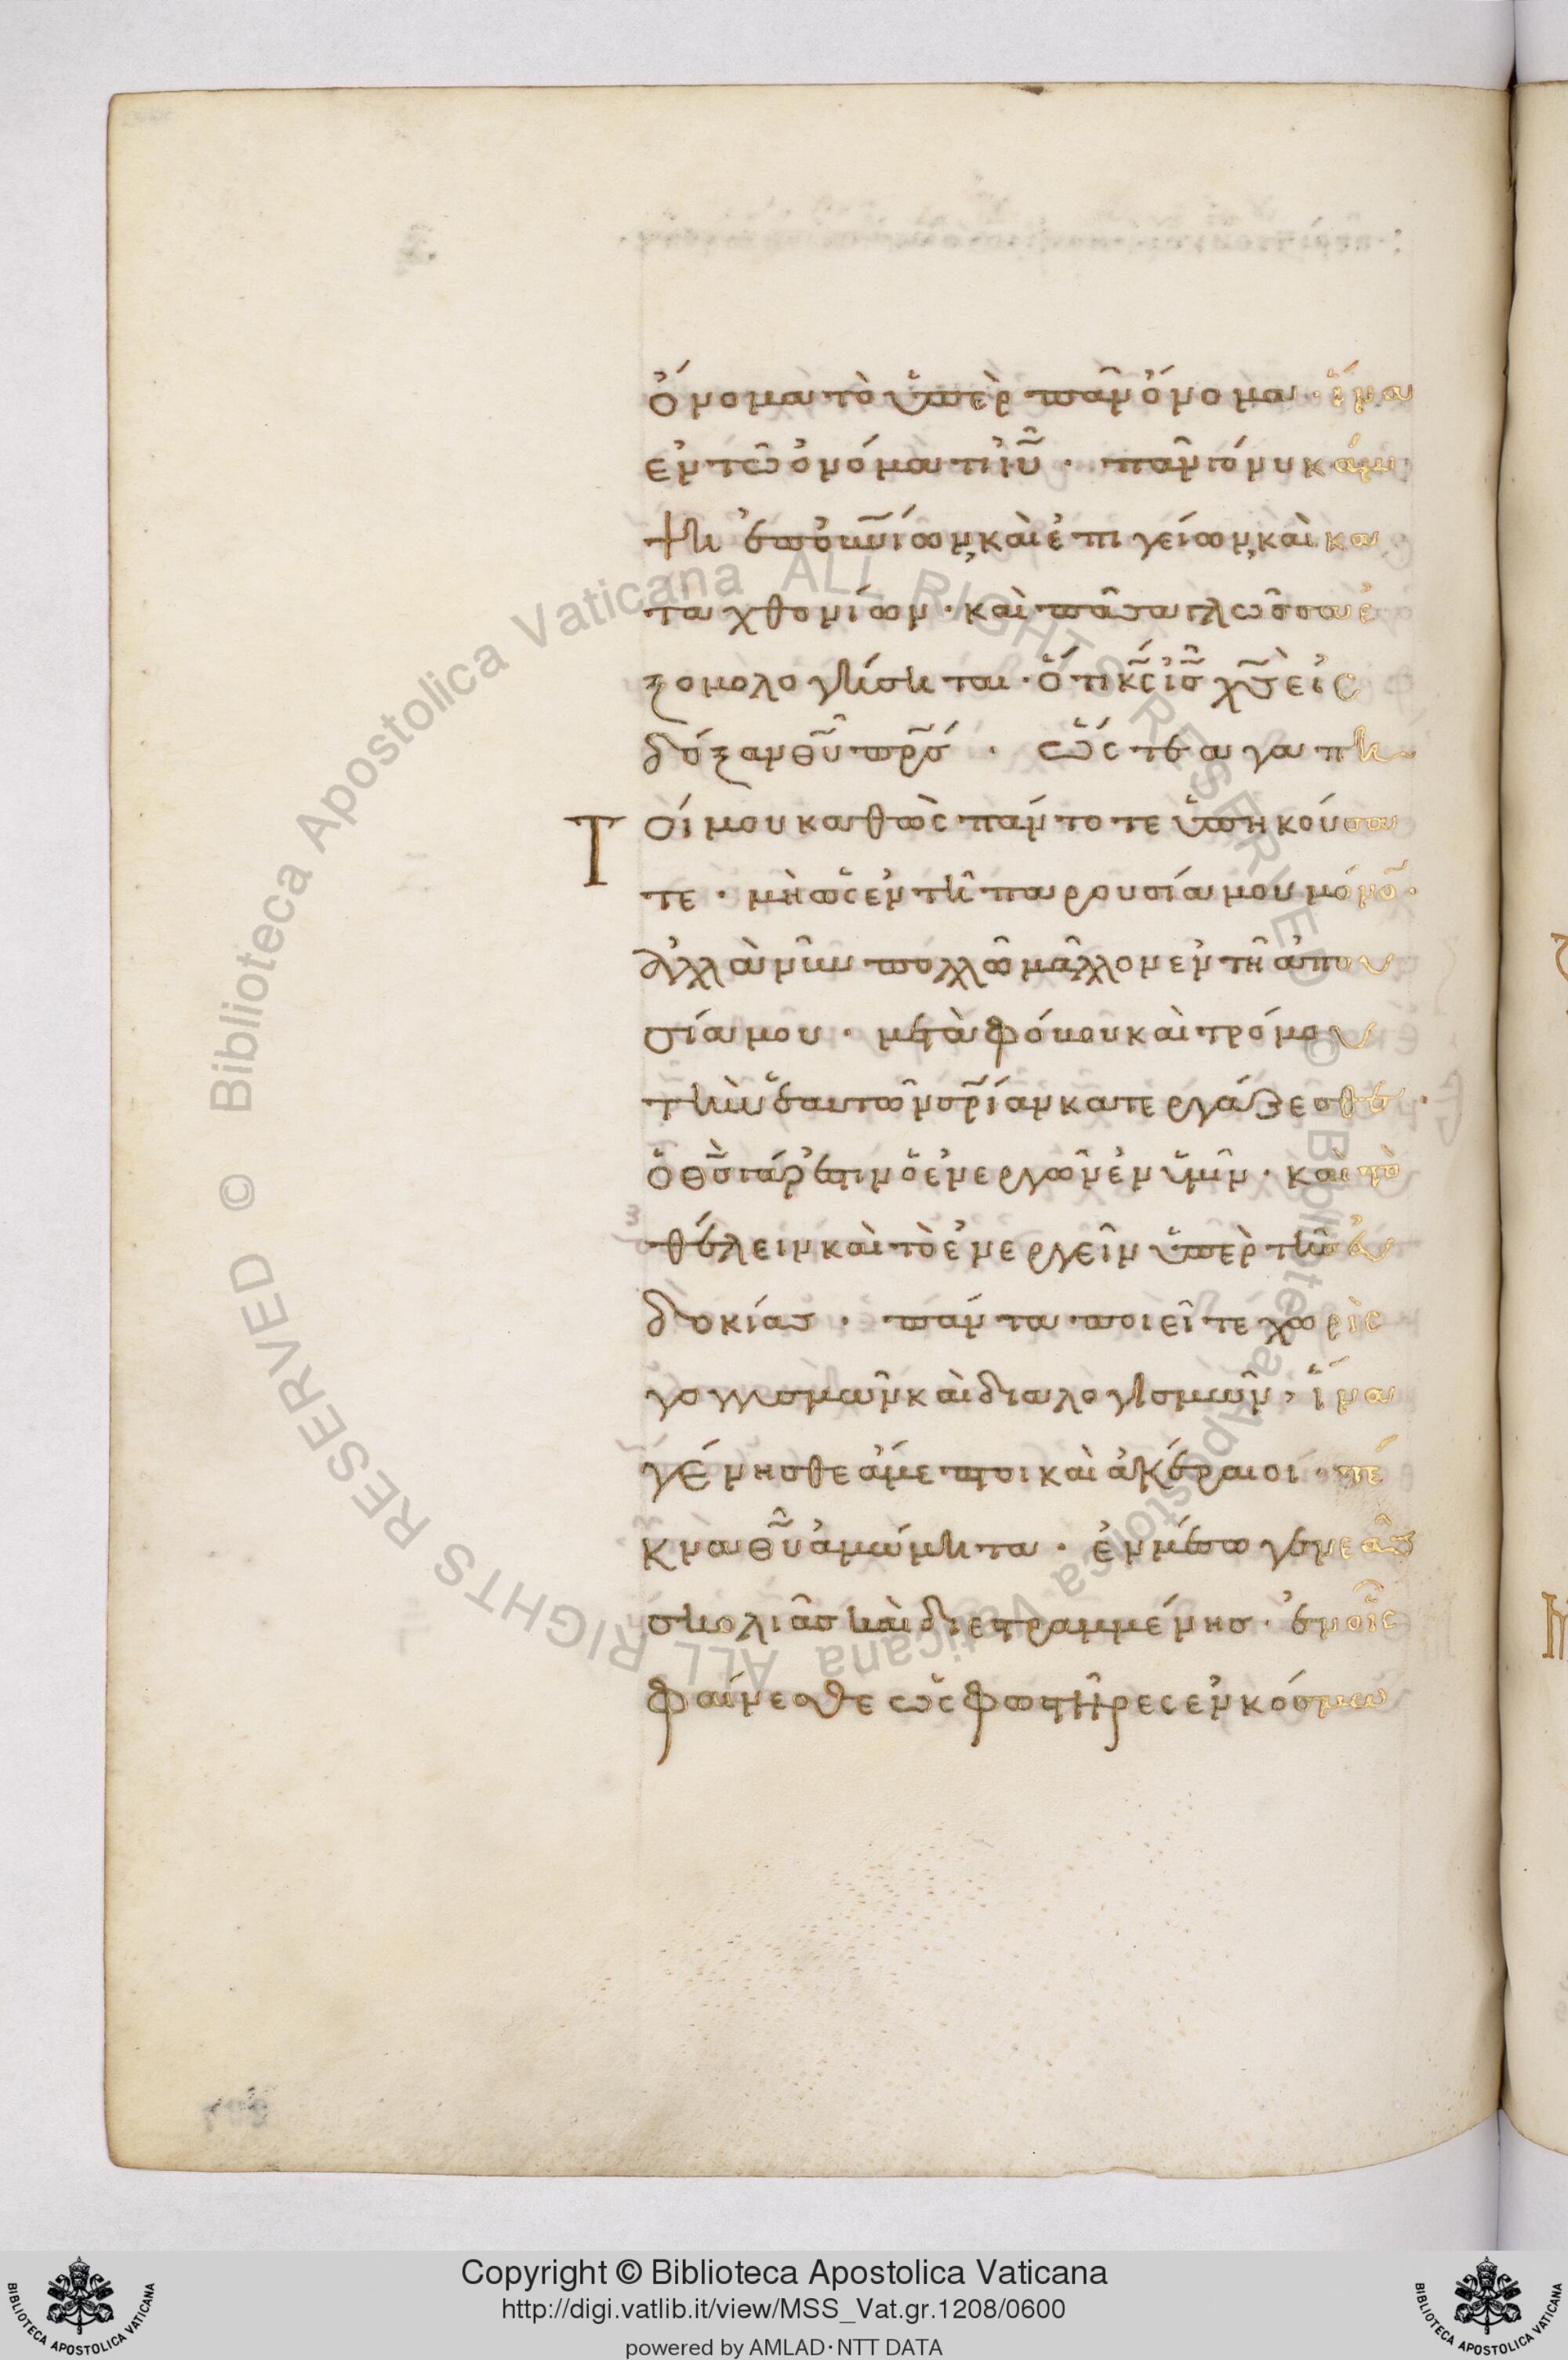 ὄνομα τὸ ὑπὲρ πᾶν ὄνομα · ἵνα
ἐν τῶ ὀνόματι ἰυ̃ · πᾶν γόνυ κάμ
ψη ἐπουν̃ίων, καὶ ἐπιγείων, καὶ κα
ταχθονίων · καὶ πᾶσα γλῶσσα ἐ
ξομολογήσηται · ὅτι κς̃ ις̃ χς̃ εἰς
δόξαν θυ̃ πρ̃σ · ὥστε αγαπη
τοί μου καθὼς πάντοτε ὑπηκούσα
τε · μὴ ὡς ἐν τῆ παρουσία μου μόνο̃ ·
ἀλλὰ νῦν πολλῶ μᾶλλον ἐν τῆ ἀπου
σία μου · μετὰ φόβου καὶ τρόμου
τὴν ἑαυτῶν σρ̃ίαν κατεργάζεσθε ·
ὁ θς̃ γάρ ἐστιν ὁ ἐνεργῶν ἐν ὑμῖν · καὶ τὸ
θέλειν καὶ τὸ ἐνεργεῖν ὑπὲρ τῆς εὐ
δοκίας · πάντα ποιεῖτε χωρὶς
γογγυσμῶν καὶ διαλογισμῶν, ἵνα
γένησθε ἄμεμπτοι καὶ ἀκέραιοι · τέ
κνα θυ̃ ἀμώμητα · ἐν μέσω γενεᾶς
σκολιᾶς καὶ διεστραμμένης · ἐν οἷς
φαίνεσθε ὡς φωστῆρες ἐν κόσμω
Copyright © Biblioteca Apostolica Vaticana
http://digi.vatlib.it/view/MSS_Vat.gr.1208/0600
powered by AMLAD·NTT DATA
© Biblioteca Apostolica Vaticana ALL RIGHTS RESERVED
© Biblioteca Apostolica Vaticana ALL RIGHTS RESERVED
BIBLIOTECA APOSTOLICA VATICANA
BIBLIOTECA APOSTOLICA VATICANA